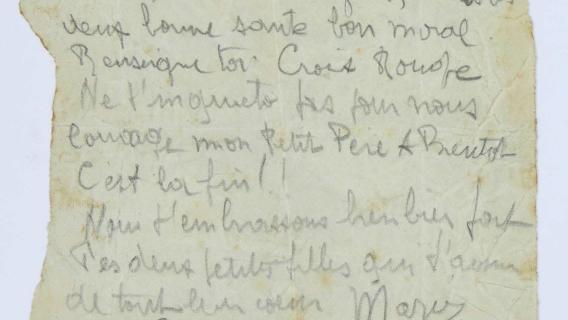 deux bonne sante bon moral
Renseigne toi Croix Rouge
Ne t'inquieto pas pour nous
courage mon Petit Père A Bientot
C'est la fin!!
Nous t'embrassons bien bien fort
Tes deux petites filles qui t'aiment
de tout leur coeur